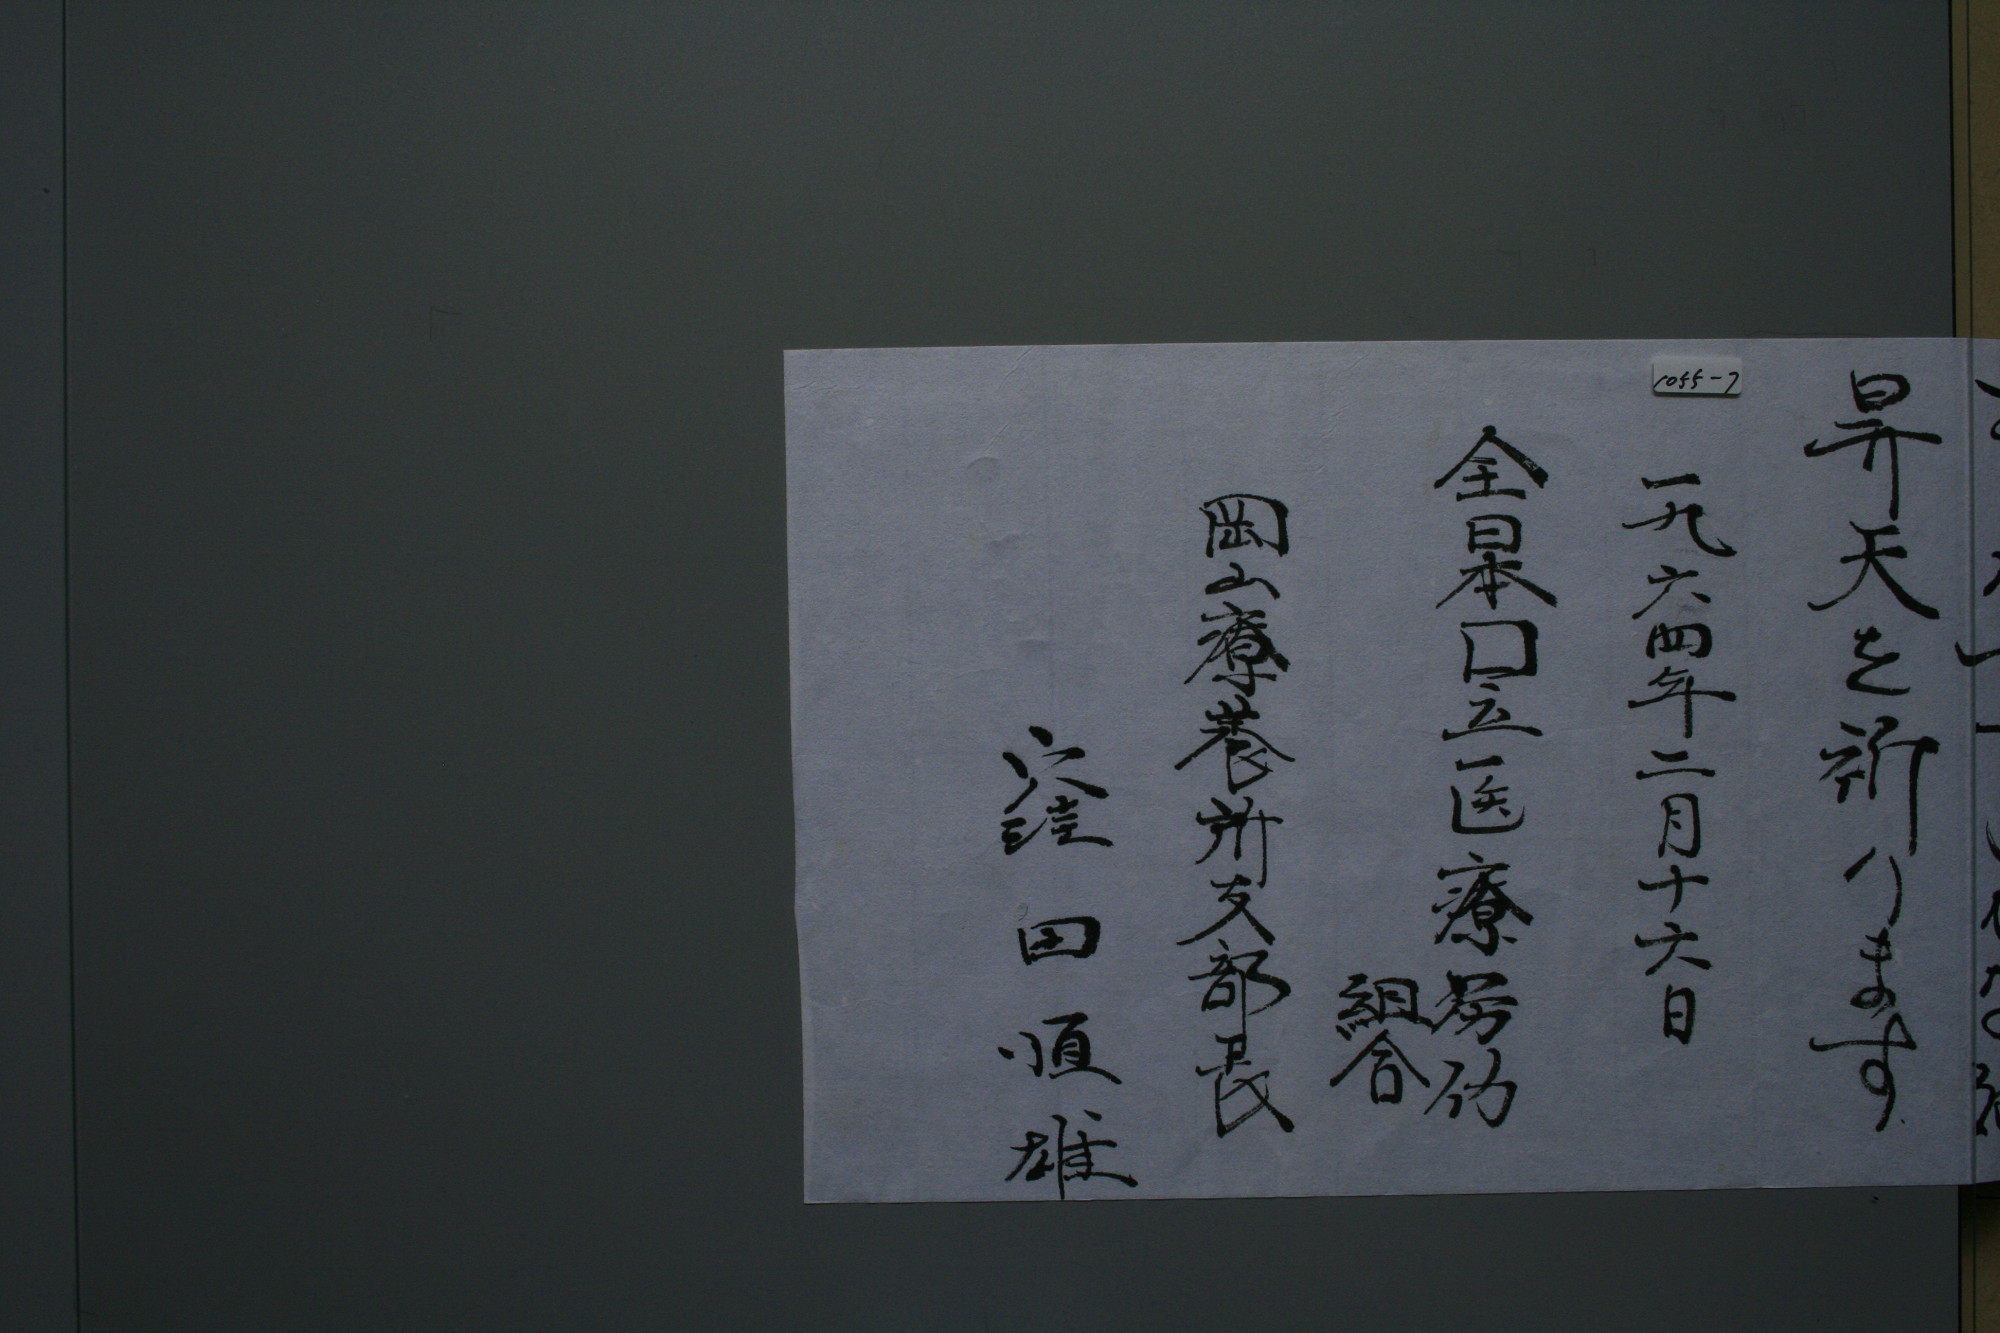 昇天を祈ります
一九六四年二月十六日
全日本囗立医療労仂
組合
岡山療養所支部長
窪田恒雄
1055-7